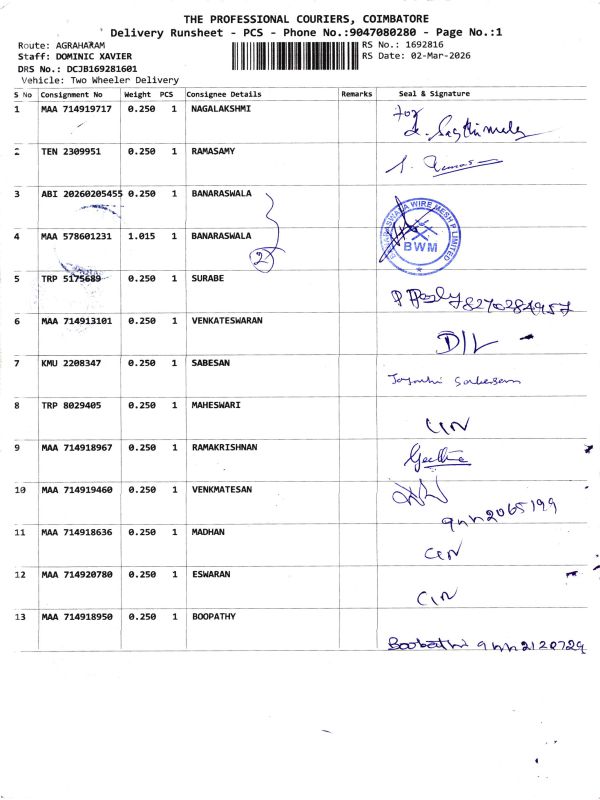 THE PROFESSIONAL COURIERS, COIMBATORE
Delivery Runsheet - PCS - Phone No.:9047080280 - Page No.:1
Route: AGRAHARAM
RS No.: 1692816
Staff: DOMINIC XAVIER
RS Date: 02-Mar-2026
DRS No.: DCJB169281601
Vehicle: Two Wheeler Delivery
S No Consignment No Weight PCS Consignee Details Remarks Seal & Signature
1 MAA 714919717 0.250 1 NAGALAKSHMI for
2 TEN 2309951 0.250 1 RAMASAMY
3 ABI 20260205455 0.250 1 BANARASWALA
4 MAA 578601231 1.015 1 BANARASWALA 2
BANARASWALA WIRE MESH P LIMITED
BWM
5 TRP 5175689 0.250 1 SURABE 8270284957
6 MAA 714913101 0.250 1 VENKATESWARAN D/L
7 KMU 2208347 0.250 1 SABESAN
8 TRP 8029405 0.250 1 MAHESWARI
9 MAA 714918967 0.250 1 RAMAKRISHNAN Geetha
10 MAA 714919460 0.250 1 VENKMATESAN
11 MAA 714918636 0.250 1 MADHAN
12 MAA 714920780 0.250 1 ESWARAN
13 MAA 714918950 0.250 1 BOOPATHY Boobathi